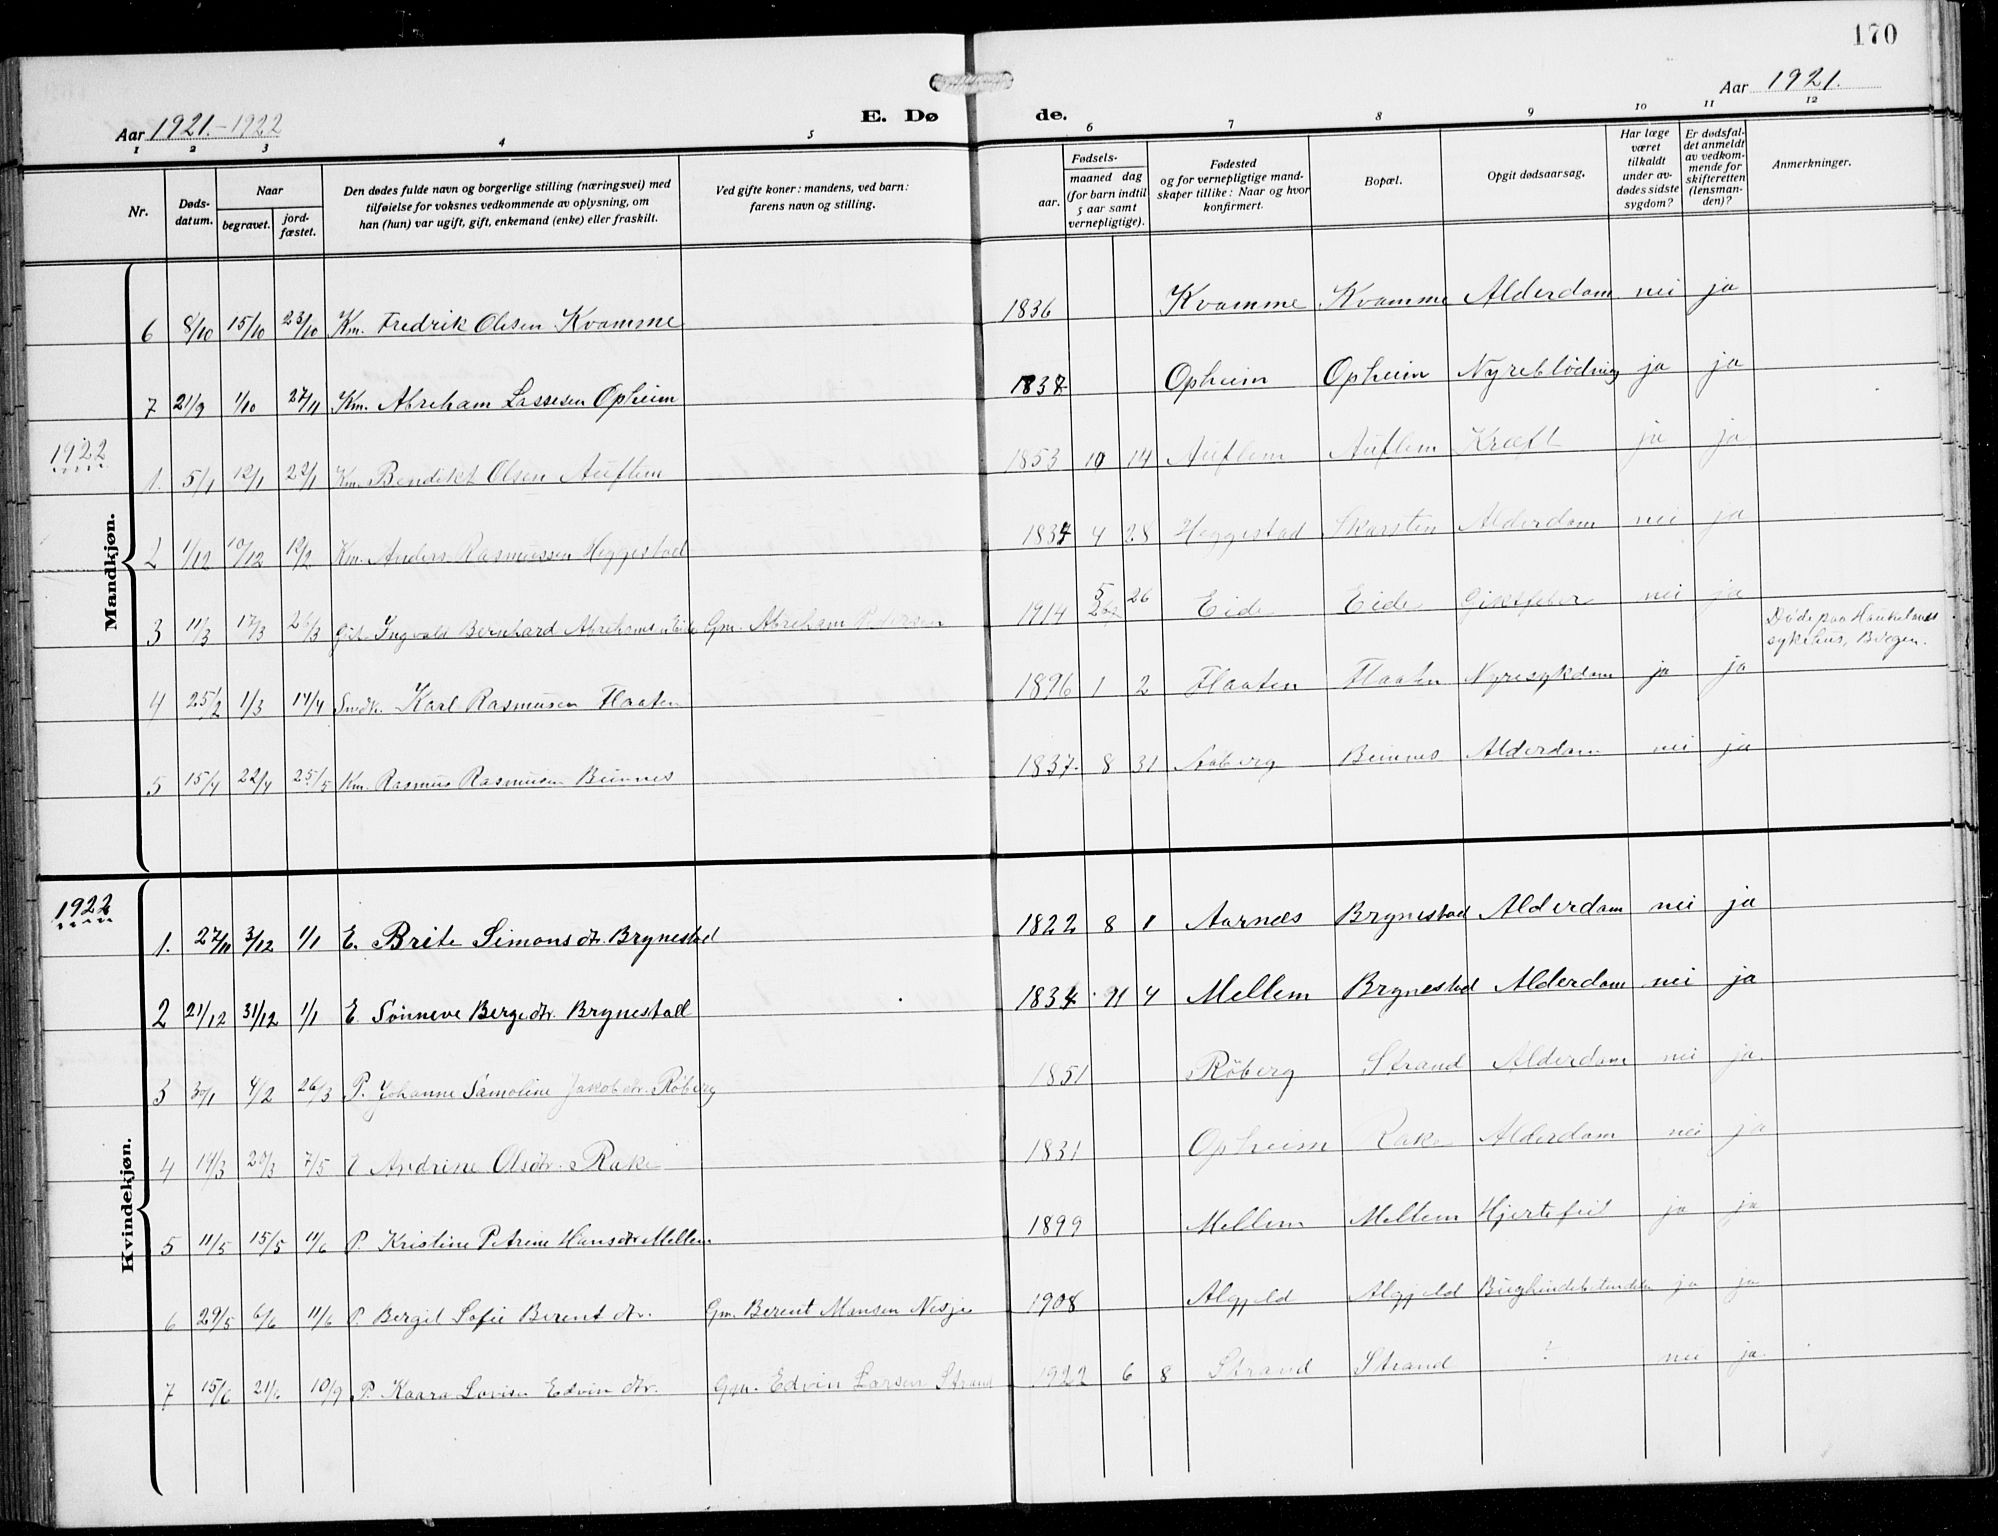 170
Aar 1921.-1922
E. Dø de.
Aar 1921.
1 2 3 4 5 6 7 8 9 10 11 12
Nr.
Døds-datum.
Naar
begravet.
jord-fæstet.
Den dødes fulde navn og borgerlige stilling (næringsvei) med
tilføielse for voksnes vedkommende av oplysning, om
han (hun) var ugift, gift, enkemand (enke) eller fraskilt.
Ved gifte koner: mandens, ved barn:
farens navn og stilling.
Fødsels-
aar.
maaned dag
(for barn indtil
5 aar samt
vernepligtige).
Fødested
og for vernepligtige mand-
skaper tillike: Naar og hvor
konfirmert.
Bopæl.
Opgit dødsaarsag.
Har læge
været
tilkaldt
under av-
dødes sidste
sygdom?
Er dødsfal-
det anmeldt
av vedkom-
mende for
skifteretten
(lensman-
den)?
Anmerkninger.
Mandkjøn.
6 8/10 15/10 23/10 Km. Fredrik Olesen Kvamme 1836 Kvamme Kvamme Alderdom nei ja
7 21/9 1/10 27/11 Km. Abreham Lassesen Opheim 1838 Opheim Opheim Nyreblødning ja ja
1922
1. 5/1 12/1 22/1 Km. Bendikt Olsen Auflem 1853 10 14 Auflem Auflem Kræft ja ja
2 1/12 10/12 19/2 Km. Anders Rasmussen Heggestad 1837 4 28 Heggestad Skarsten Alderdom nei ja
3 11/3 17/3 26/3 Ingvald Bernhard Abrahamsen Eide Gm. Abreham Pedersen 1914 5 26 Eide Eide Giktfeber nei ja Døde paa Haukelands
sykehus, Bergen.
4 25/2 1/3 17/4 Snedk. Karl Rasmusen Flaaten 1896 1 2 Flaaten Flaaten Nyresykdom ja ja
5 15/4 22/4 25/5 Km. Rasmus Rasmusen Beinnes 1837. 8 31 Aaberg Beinnes Alderdom nei ja
Kvindekjøn.
1922
1. 27/11 3/12 1/1 E. Brite Simonsdtr. Brynestad 1822 8 1 Aarnes Brynestad Alderdom nei ja
2 21/12 31/12 1/1 E. Sönneve Bergedtr. Brynestad 1834 11 4 Mellem Brynestad Alderdom nei ja
3 30/1 4/2 26/3 P. Johanne Samoline Jakobdtr. Röberg 1851 Röberg Strand Alderdom nei ja.
4 14/3 20/3 7/5 E Andrine Olsdtr. Rake 1831 Opheim Rake Alderdom nei ja
5 11/5 15/5 11/6 P. Kristine Petrine Hansdtr Mellem 1899 Mellem Mellem Hjertefeil ja ja
6 29/5 6/6 11/6 P. Bergit Sofie Berent dtr. Gm. Berent Monsen Nesje 1908 Algjeld Algjeld Bughindebetendelse ja ja
7 15/6 21/6 10/9 P. Kaara Lovise Edvin dtr. Gm. Edvin Larsen Strand 1922 6 8 Strand Strand ? nei ja.